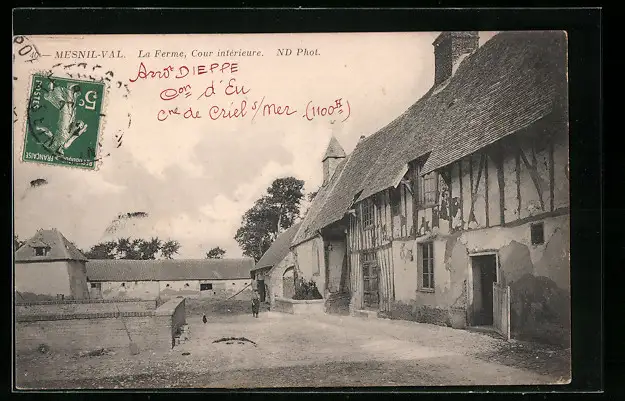 40 — MESNIL-VAL. La Ferme, Cour intérieure. ND Phot.
Arrᵗ DIEPPE
Cᵒⁿ d'Eu
Cⁿᵉ de Criel s/Mer (1100ᴴ)
POSTES
5ᶜ
RÉPUBLIQUE FRANÇAISE